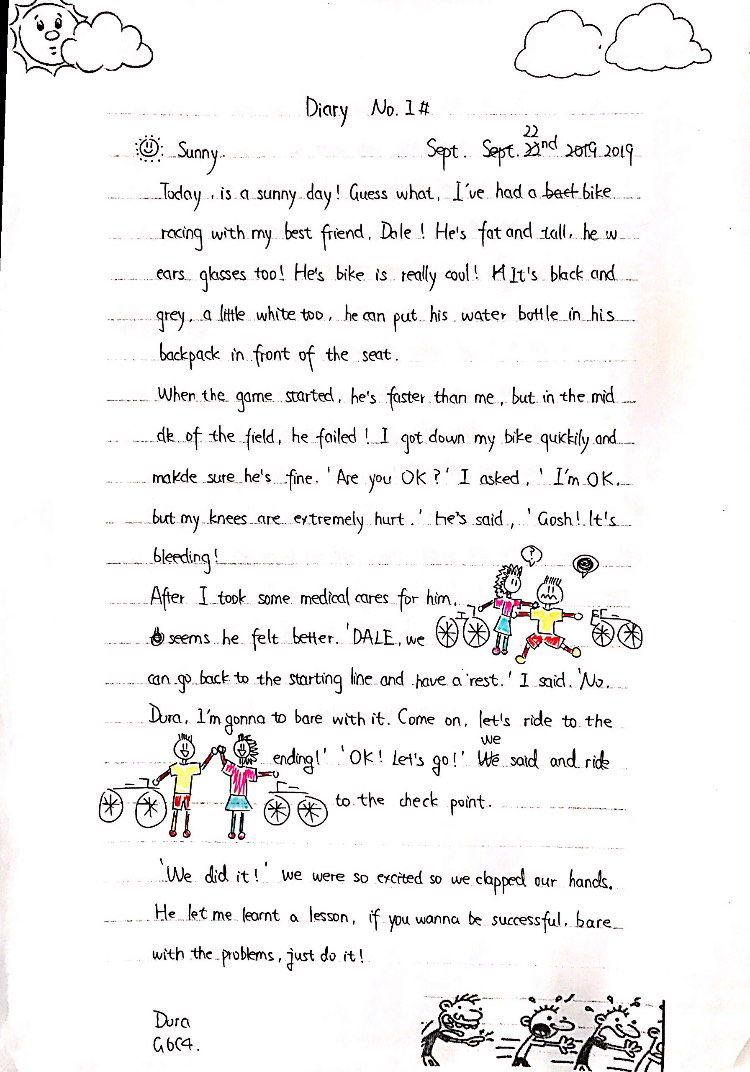 Diary No. 1#
Sunny. Sept. Sept. 22nd 2019 2019
Today, is a sunny day! Guess what, I've had a baet bike
racing with my best friend, Dale! He's fat and tall, he w
ears glasses too! He's bike is really cool! H It's black and
grey, a little white too, he can put his water bottle in his
backpack in front of the seat.
When the game started, he's faster than me, but in the mid
dle of the field, he failed! I got down my bike quickily and
makde sure he's fine. 'Are you OK?' I asked, 'I'm OK,
but my knees are extremely hurt.' he's said, 'Gosh! It's
bleeding!
?
After I took some medical cares for him,
seems he felt better. 'DALE, we
can go back to the starting line and have a rest.' I said. 'No,
Dura, I'm gonna to bare with it. Come on, let's ride to the
ending!' 'OK! Let's go!' We we said and ride
to the check point.
'We did it!' we were so excited so we clapped our hands.
He let me learnt a lesson, if you wanna be successful, bare
with the problems, just do it!
Dura
G6C4.